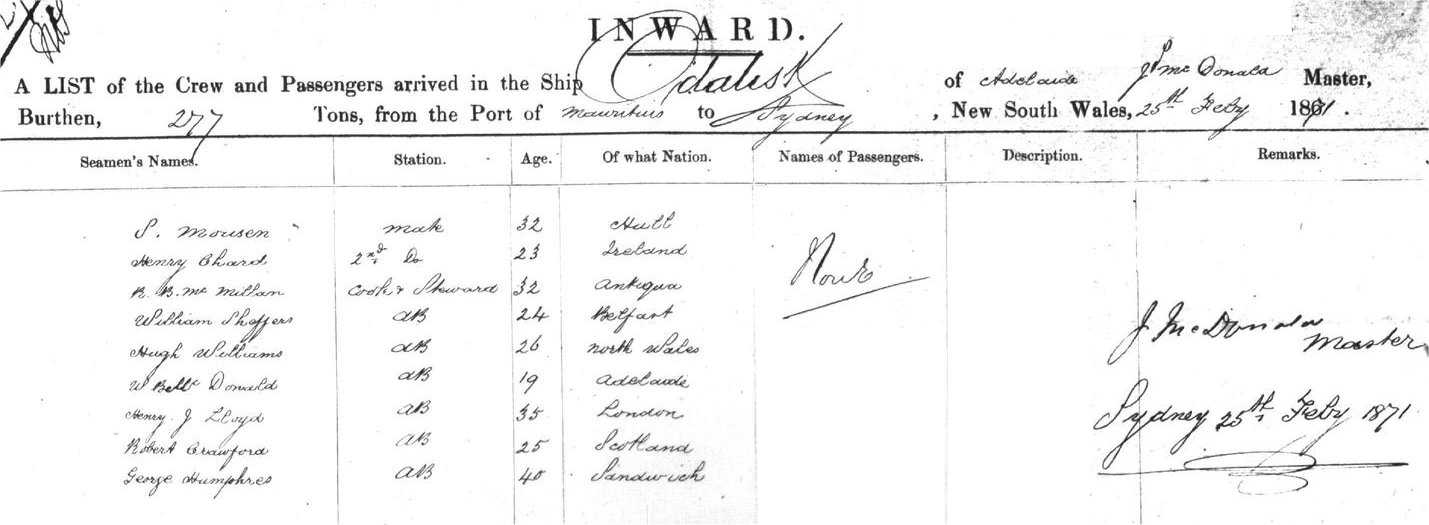 INWARD.
A LIST of the Crew and Passengers arrived in the Ship Odalisk of Adelaide Jn McDonald Master,
Burthen, 277 Tons, from the Port of Mauritius to Sydney, New South Wales, 25th Feby 1871.
Seamen's Names. Station. Age. Of what Nation. Names of Passengers. Description. Remarks.
S. Mousen mate 32 Hull
Henry Chard 2nd Do 23 Ireland None
R. B. Mc Millan Cook & Steward 32 Antigua
William Sheffers AB 24 Belfast
Hugh Williams AB 26 North Wales J McDonald Master
W Donald AB 19 Adelaide
Henry J Lloyd AB 35 London Sydney 25th Feby 1871
Robert Crawford AB 25 Scotland
George Humphres AB 40 Sandwich